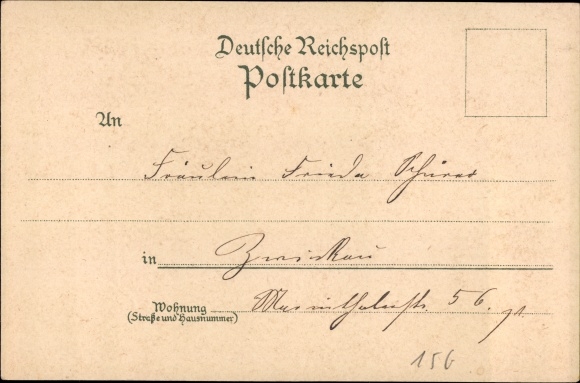 Deutsche Reichspost
Postkarte
An
Fräulein Frieda
in Zwickau
Wohnung
(Straße und Hausnummer)
Marienthalerstr. 56.
156